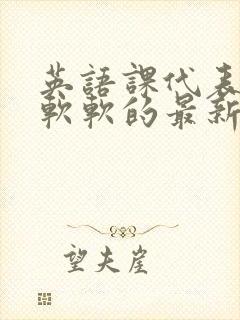 英語課代表
軟軟的最新
望夫崖